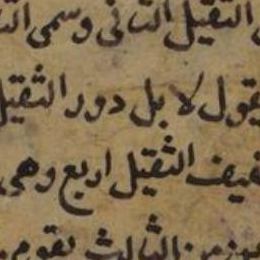 الثقيل الثانى وسمى
يقول لا بل دور الثقيل
خفيف الثقيل اربع وهى
من الثالث يقوم